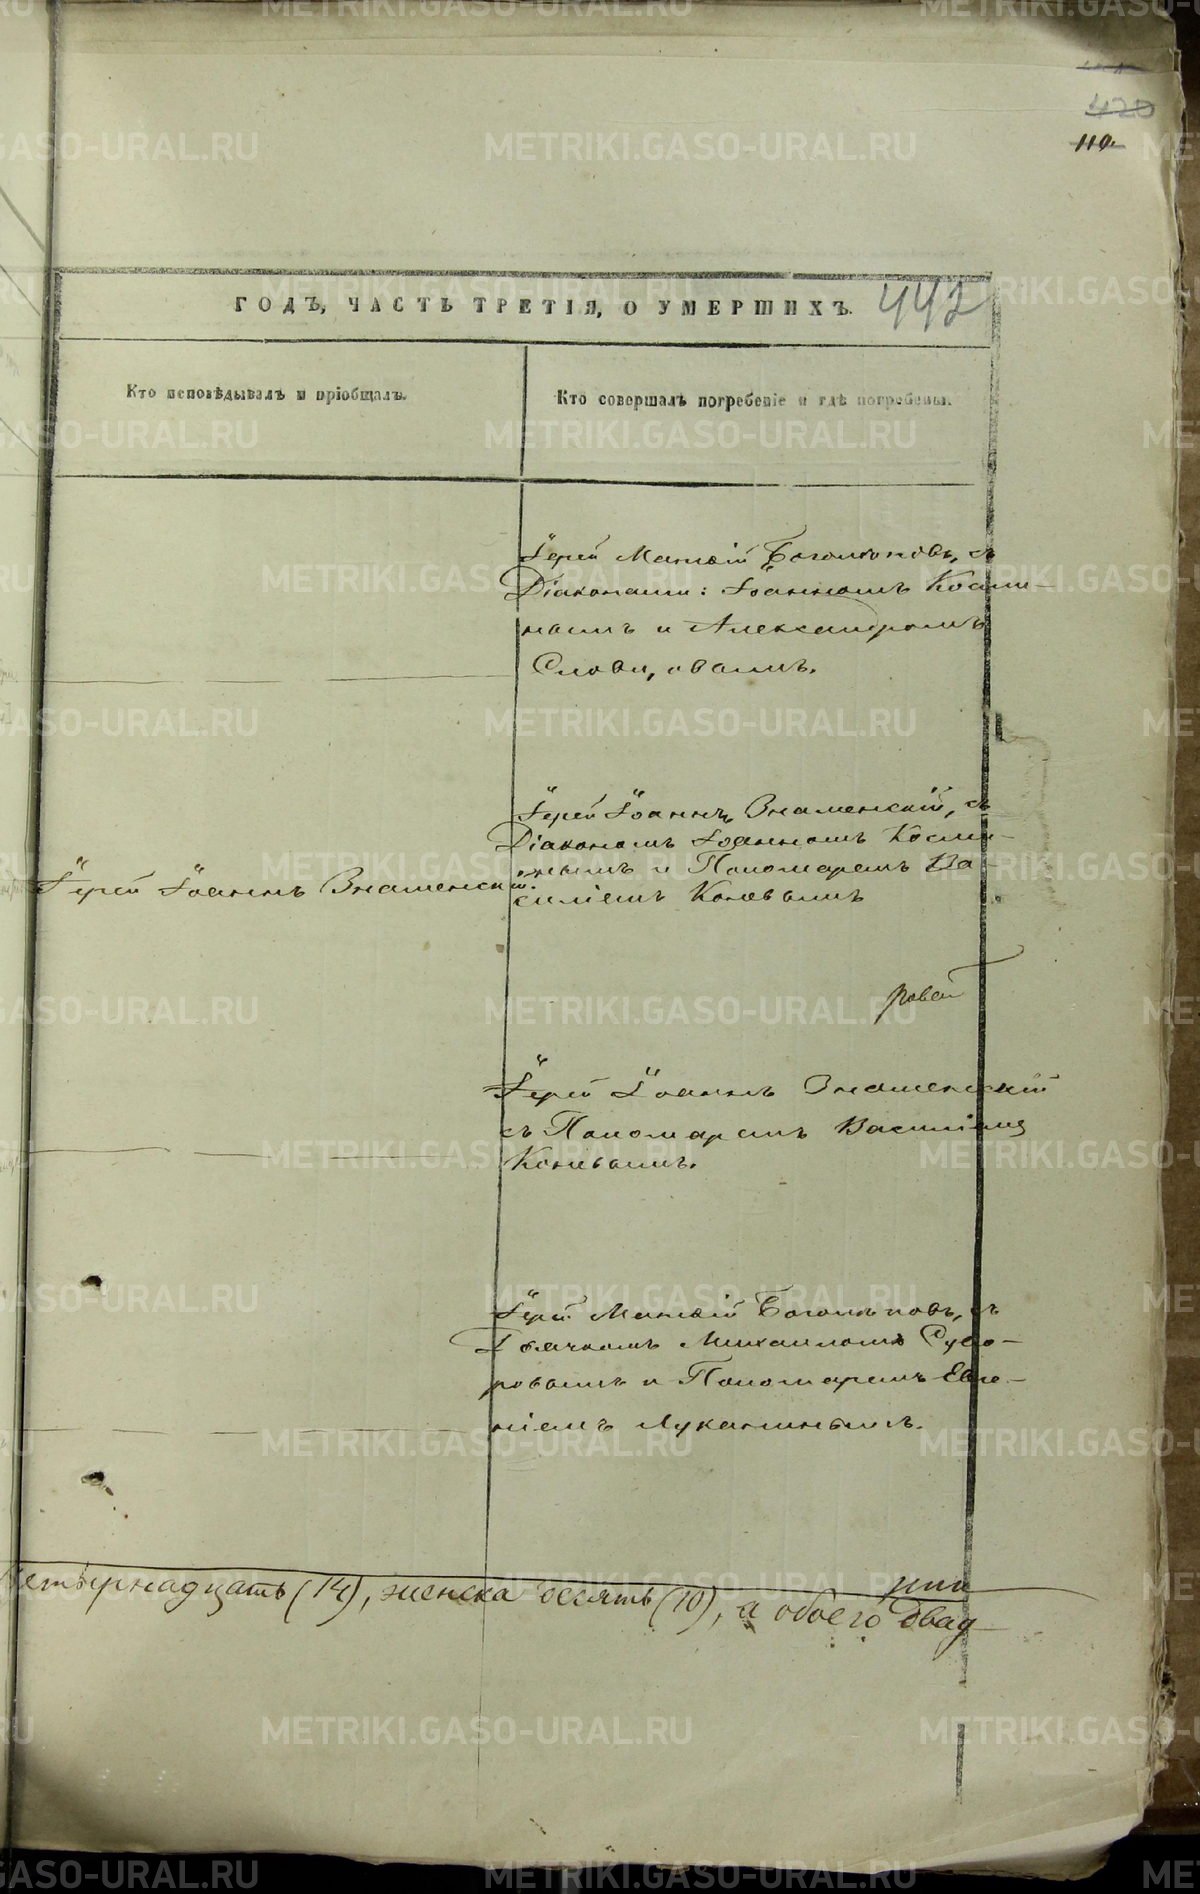 420
110.
ГОДЪ, ЧАСТЬ ТРЕТІЯ, О УМЕРШИХЪ.
442
Кто исповѣдывалъ и пріобщалъ.
Кто совершалъ погребеніе и гдѣ погребены.
Іерей Матѳій Боголюповъ, съ
Діаконами: Іоанномъ Косми-
нымъ и Александромъ
Словцовымъ.
Іерей Іоаннъ Знаменскій, съ
Діакономъ Іоанномъ Косми-
нымъ и Пономаремъ Ва-
силіемъ Коневымъ
Іерей Іоаннъ Знаменскій.
Іерей Іоаннъ Знаменскій
съ Пономаремъ Василіемъ
Коневымъ.
Іерей Матѳій Боголюповъ, съ
Дьячкомъ Михаиломъ Суво-
ровымъ и Пономаремъ Евге-
ніемъ Луканинымъ.
четырнадцать (14), женска десять (10), а обоего двад
METRIKI.GASO-URAL.RU